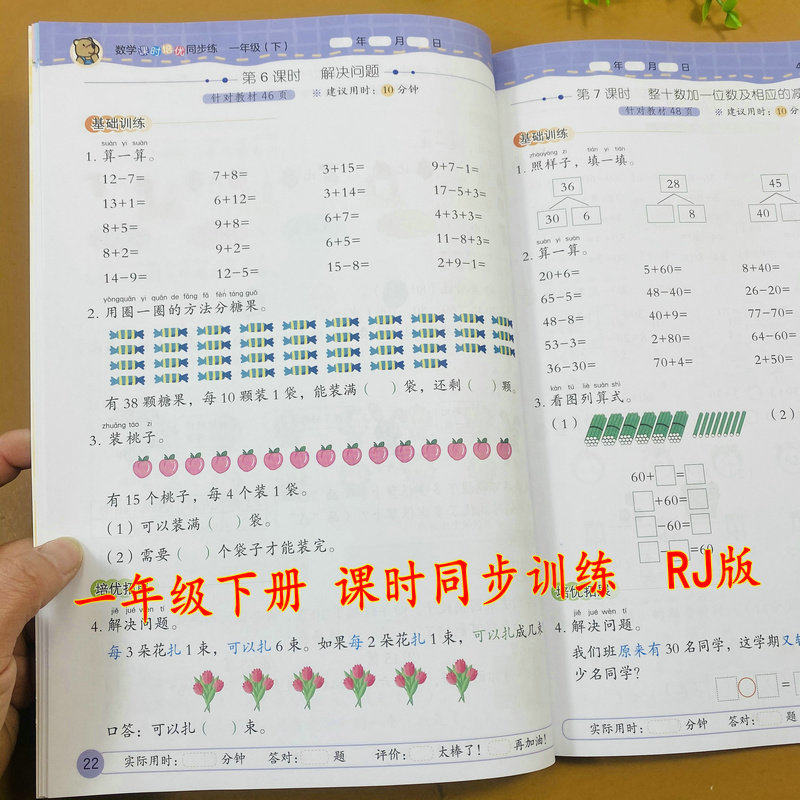 数学课时培优同步练 一年级(下)
年 月 日
第6课时 解决问题
针对教材46页
※ 建议用时:10分钟
基础训练
suàn yi suàn
1. 算一算。
12-7= 7+8= 3+15= 9+7-1=
13+1= 6+12= 3+14= 17-5+3=
8+5= 9+8= 6+7= 4+3+3=
8+2= 9+2= 6+5= 11-8+3=
14-9= 12-5= 15-8= 2+9-1=
yòngquān yi quān de fāng fǎ fēn táng guǒ
2. 用圈一圈的方法分糖果。
有38颗糖果,每10颗装1袋,能装满( )袋,还剩( )颗。
zhuāng táo zi
3. 装桃子。
有15个桃子,每4个装1袋。
(1)可以装满( )袋。
(2)需要( )个袋子才能装完。
培优拓展
jiě jué wèn tí
4. 解决问题。
每3朵花扎1束,可以扎6束。如果每2朵花扎1束,可以扎成几束
口答:可以扎( )束。
22 实际用时: 分钟 答对: 题 评价: 太棒了! 再加油!
年 月 日
第7课时 整十数加一位数及相应的减
针对教材48页
※ 建议用时:10分
基础训练
zhàoyàng zi tián yi tián
1. 照样子,填一填。
36 28 45
30 6 8 40
suàn yi suàn
2. 算一算。
20+6= 5+60= 8+40=
65-5= 48-40= 26-20=
48-8= 40+9= 77-70=
53-3= 2+80= 64-60=
36-30= 70+4= 2+50=
kàn tú liè suàn shì
3. 看图列算式。
(1) (2)
60+ =
+60=
-60=
- =60
培优拓展
jiě jué wèn tí
4. 解决问题。
我们班原来有30名同学,这学期又转
少名同学?
=
实际用时: 分钟 答对: 题
一年级下册 课时同步训练 RJ版